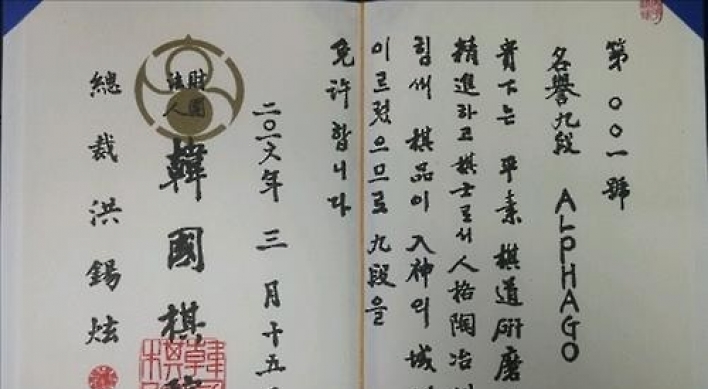 第〇〇一號
名譽九段 ALPHAGO
貴下는 平素 棋道硏磨
精進하고 棋士로서 人格陶冶
힘써 棋品이 入神의 域
이르렀으므로 九段을
免許합니다
二〇一六年 三月十五
財團
法人
韓國棋院
總裁 洪錫炫